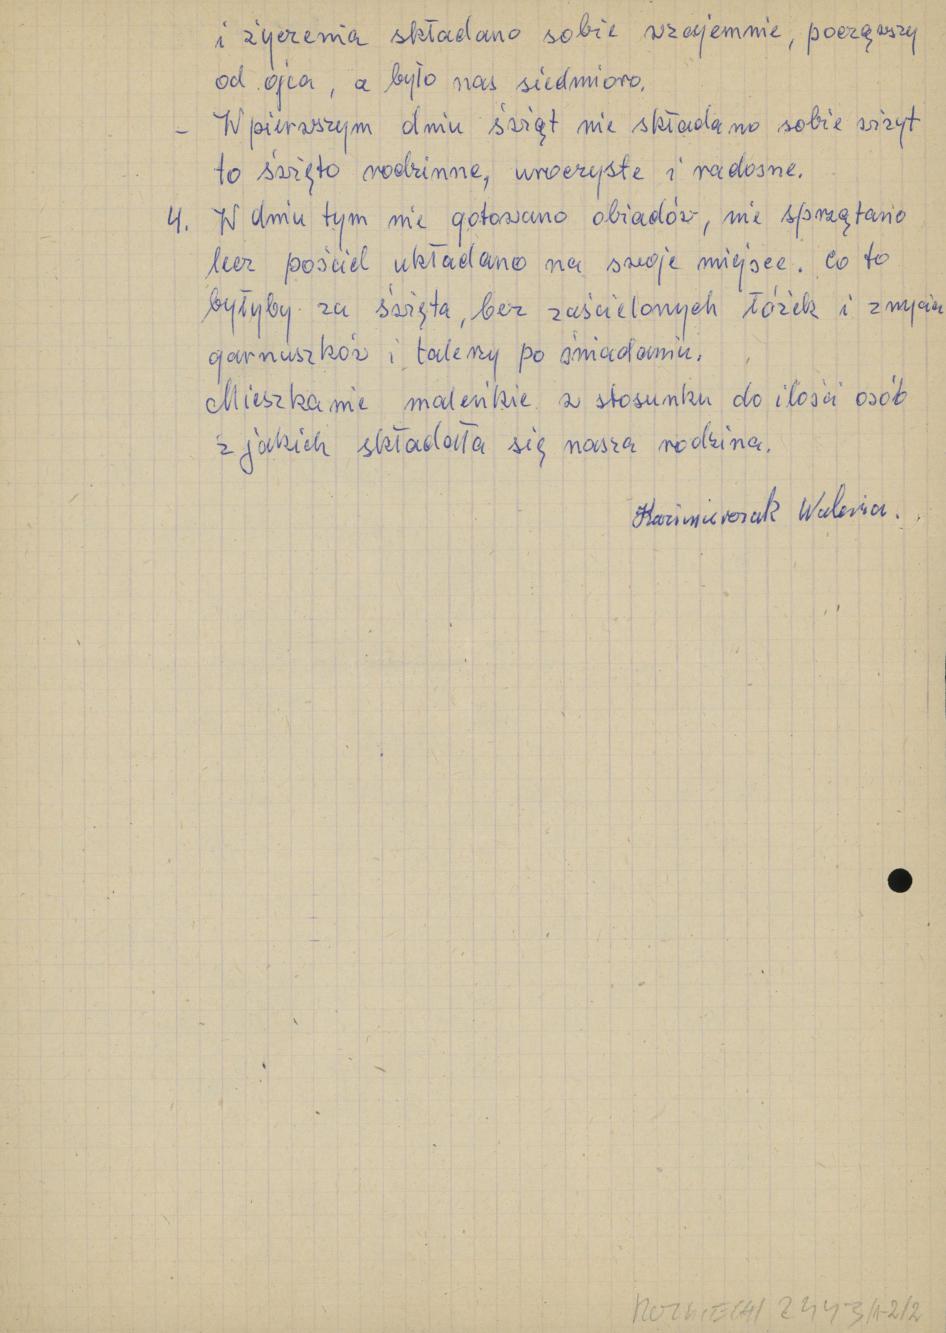 i życzenia składano sobie wzajemnie, począwszy
od ojca, a było nas siedmioro.
- W pierwszym dniu świąt nie składano sobie wizyt
to święto rodzinne, uroczyste i radosne.
4. W dniu tym nie gotowano obiadów, nie sprzątano
lecz pościel układano na swoje miejsce. Co to
byłyby za święta, bez zaścielonych łóżek i zmycia
garnuszków i talerzy po śniadaniu.
Mieszkanie maleńkie w stosunku do ilości osób
z jakich składała się nasza rodzina.
Kazimierczak Waleria.
2443/1-2/2